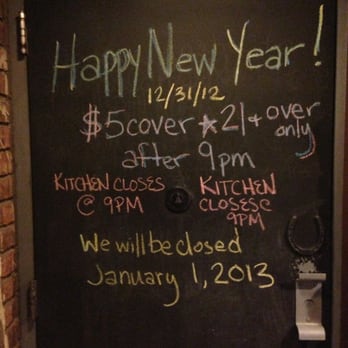 Happy New Year!
12/31/12
$5 cover ★ 21+ over
only
after 9pm
KITCHEN CLOSES
@ 9PM
KITCHEN
CLOSES@
9PM
We will be closed
January 1, 2013